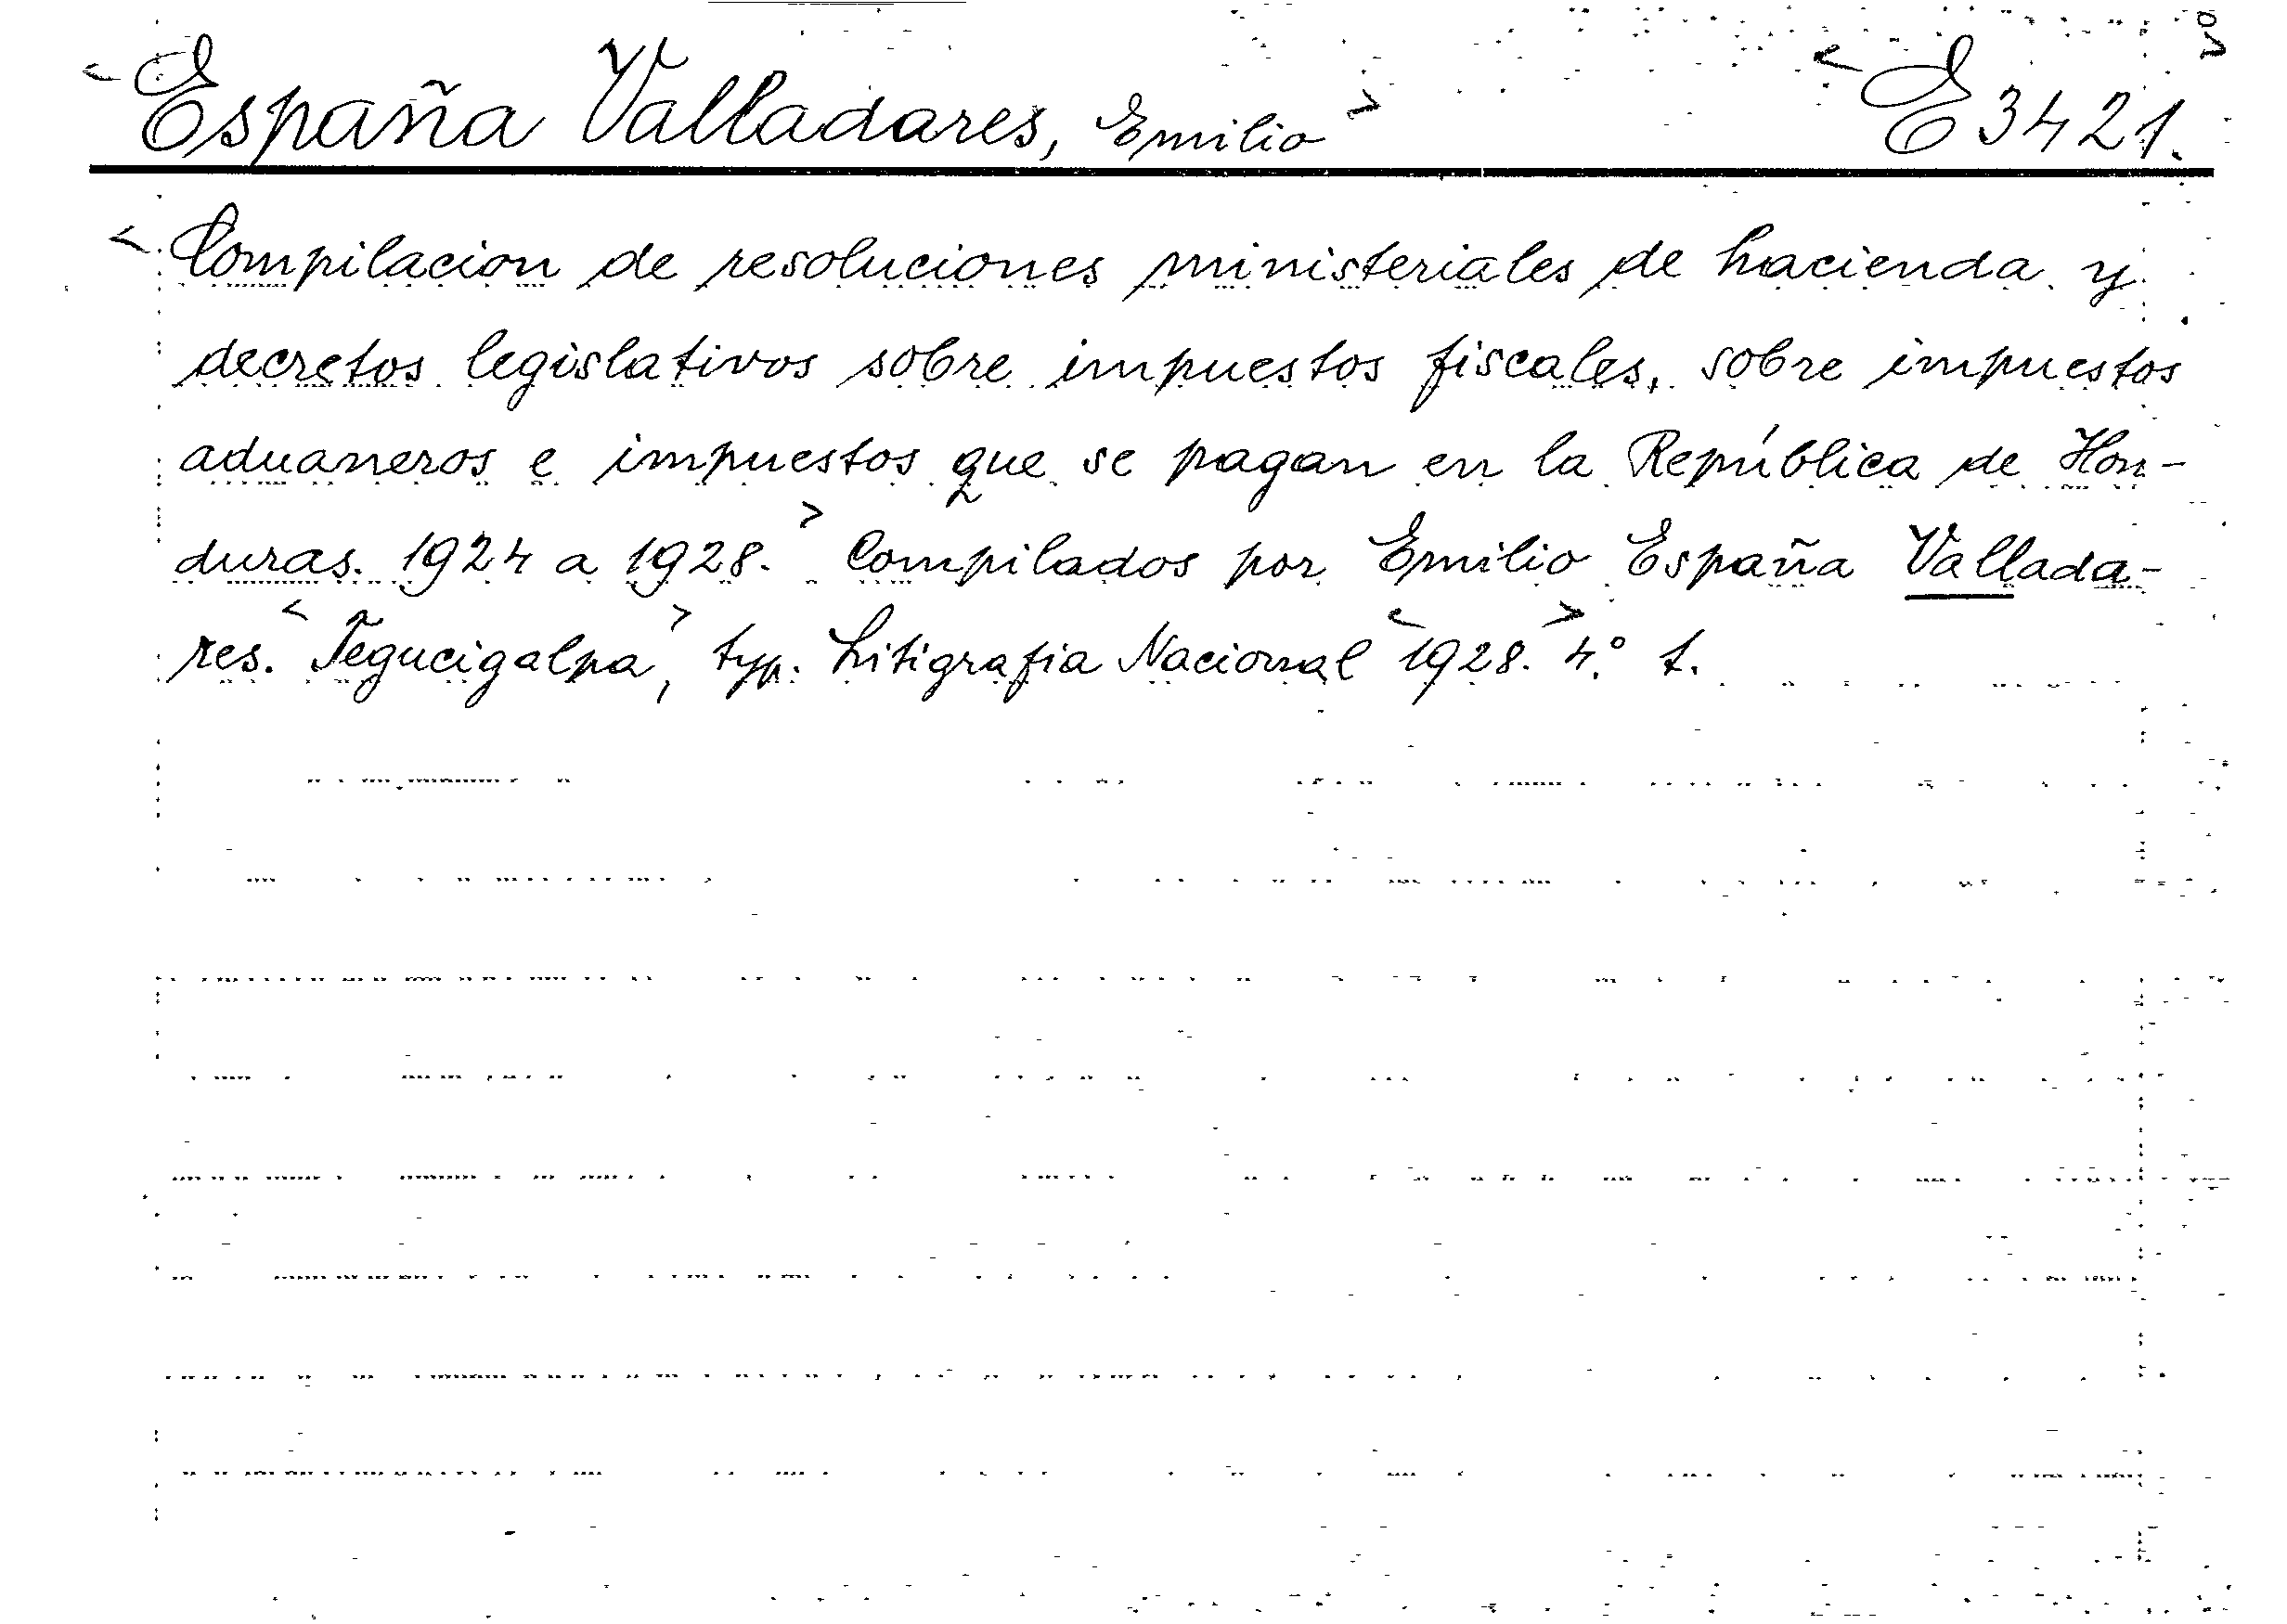 <España Valladares, Emilio> <E3421.>
<Compilacion de resoluciones ministeriales de hacienda y
decretos legislativos sobre impuestos fiscales, sobre impuestos
aduaneros e impuestos que se pagan en la República de Hon-
duras. 1924 a 1928.> Compilados por Emilio España Vallada-
res. <Tegucigalpa>, typ. Litigrafia Nacional <1928.> 4.º t.